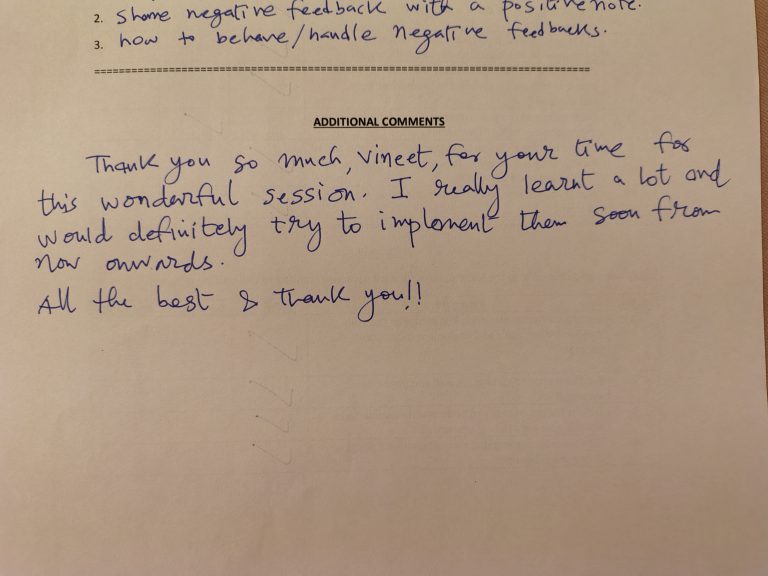 2. share negative feedback with a positive note.
3. how to behave/handle negative feedbacks.
================================================================================
ADDITIONAL COMMENTS
Thank you so much, Vineet, for your time for
this wonderful session. I really learnt a lot and
would definitely try to implement them soon from
now onwards.
All the best & Thank you!!